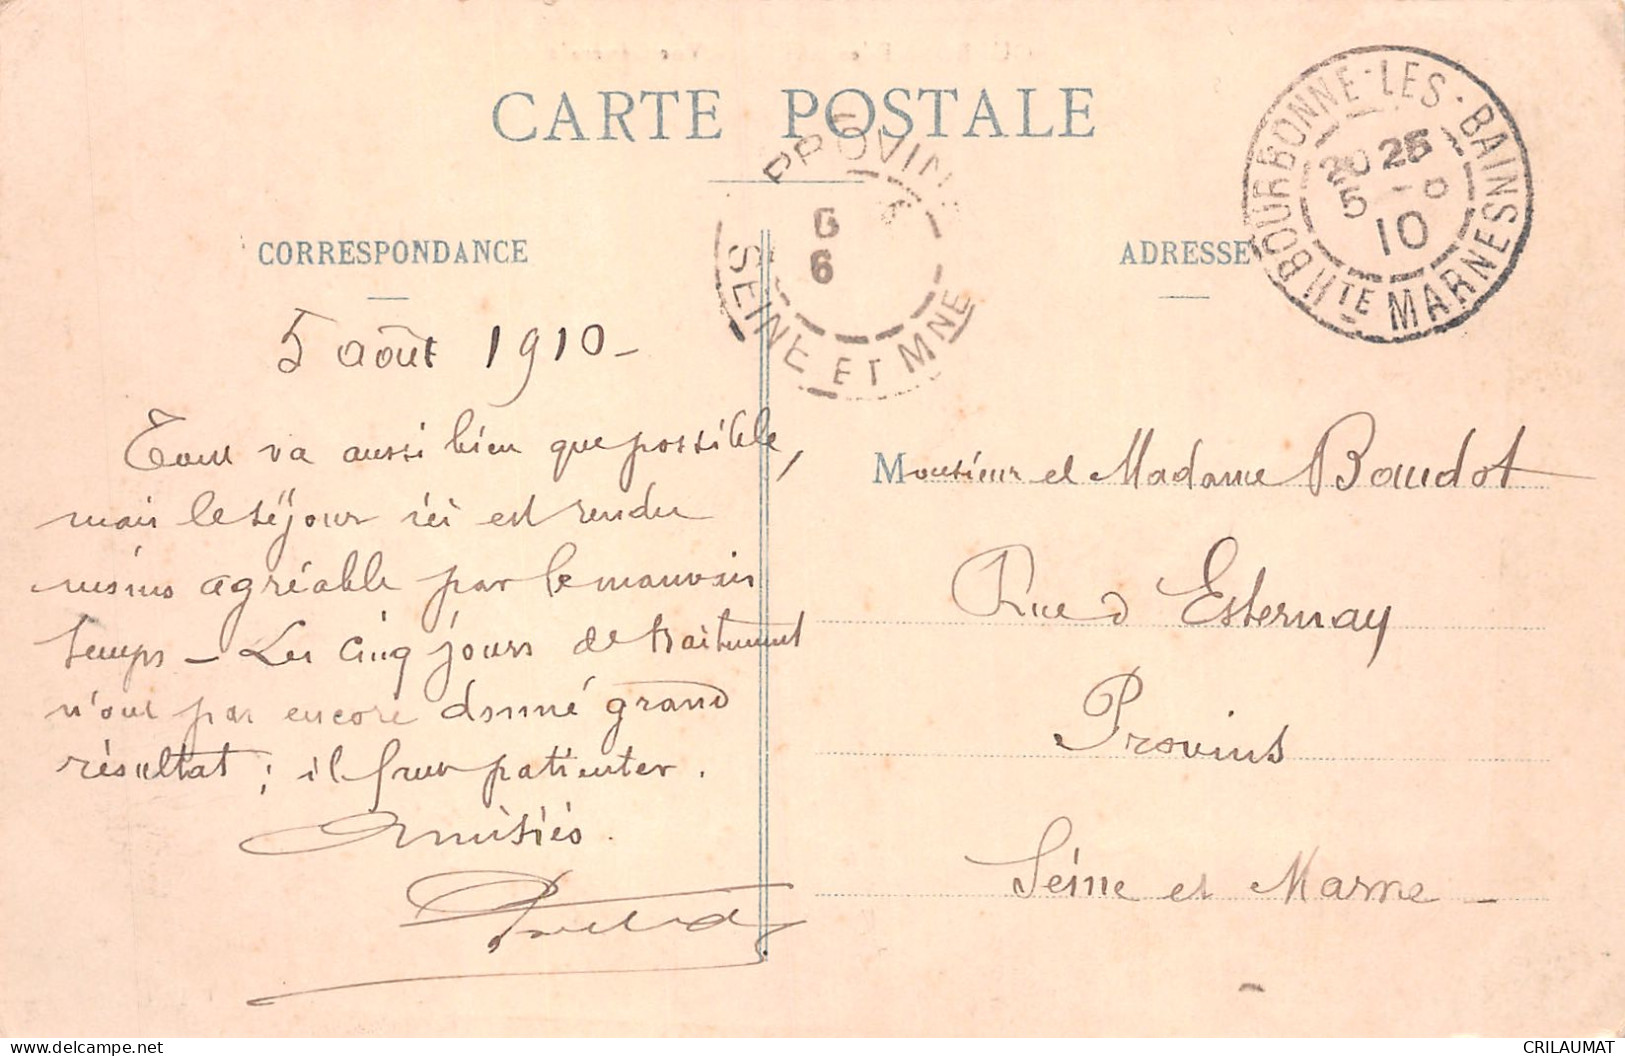 CARTE POSTALE
CORRESPONDANCE
ADRESSE
BOURBONNE-LES-BAINS
20 25
5 - 8
10
HTE MARNE
PROVINS
6
SEINE ET MNE
5 août 1910 -
Tout va aussi bien que possible,
mais le séjour ici est rendu
moins agréable par le mauvais
temps - Les cinq jours de traitement
n'ont pas encore donné grand
résultat ; il faut patienter.
Amitiés.
Monsieur et Madame Baudot
Rue d'Esternay
Provins
Seine et Marne -
CRILAUMAT